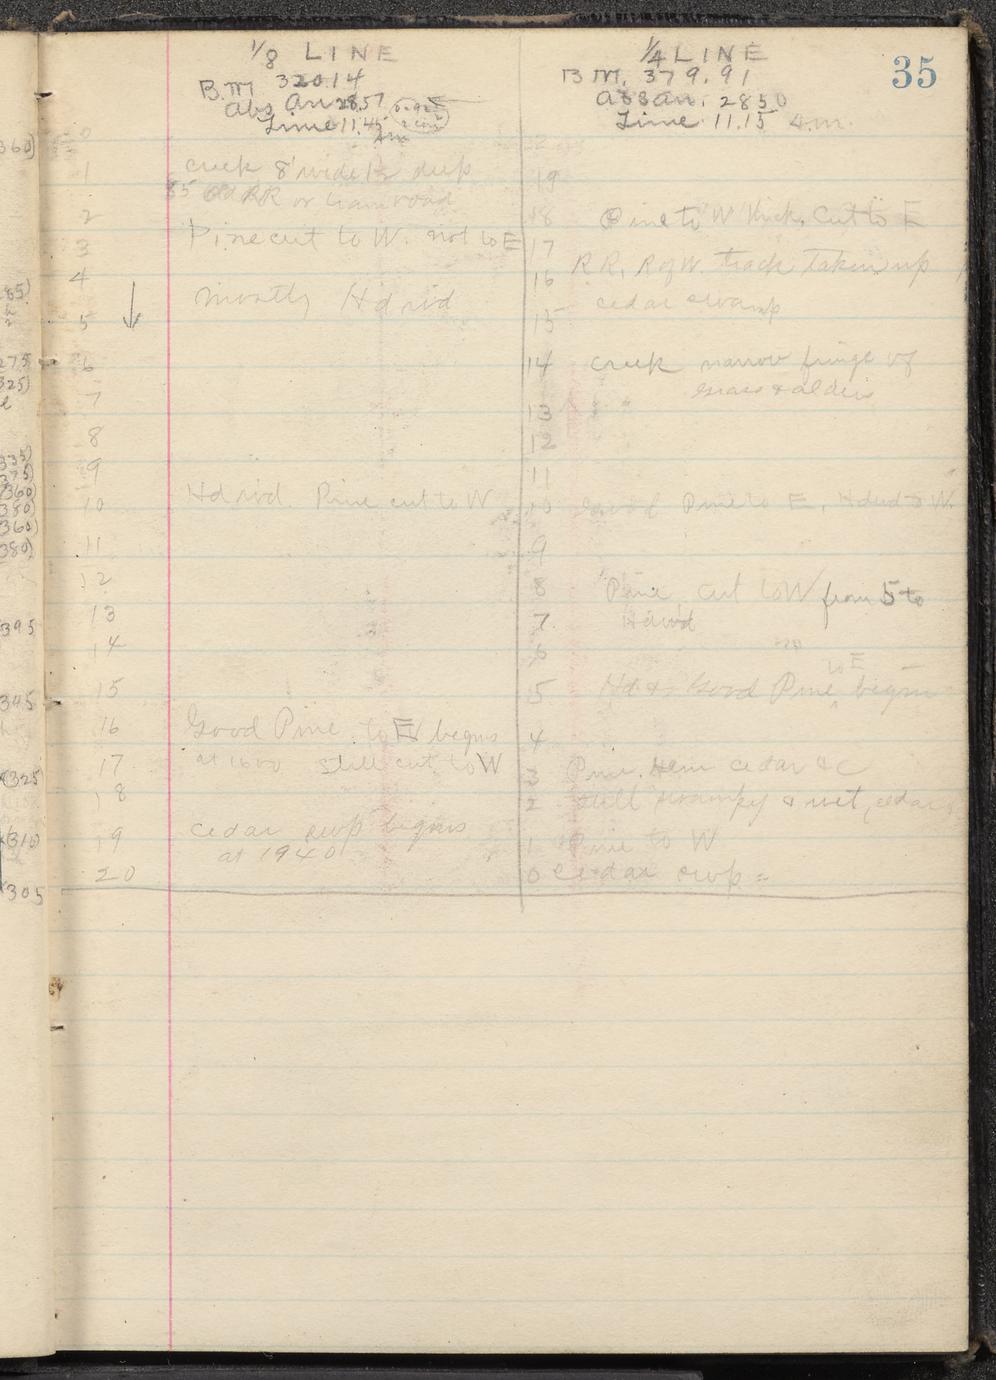 35
1/8 LINE
B.M 320.14
Abs An 28.57
Time 11.45 AM
0
1 creek 8' wide 1½ deep
85 Old RR or tram road
2
3 Pine cut to W. not to E
4
5 mostly Hd wd
6
7
8
9
10 Hd wd Pine cut to W
11
12
13
14
15
16 Good Pine to E begins
17 at 1600 still cut to W
18
19 cedar swp begins
at 1940
20
1/4 LINE
B M. 379.91
Abs An. 2850
Time 11.15 A.m.
19
18 Pine to W thick, Cut to E
17
R R, R of W. track taken up
16
cedar swamp
15
14 creek narrow fringe of
grass & alders
13
12
11
10 Good Pine to E, Hdwd to W.
9
8 Pine cut to W from 5 to
7. Hdwd
6
to E
5 Hd & Good Pine begin
4
3 Pine, Hem cedar &c
2 still swampy & wet, cedar
1 Pine to W
0 cedar swp =
360)
85)
275
325)
335)
375)
360)
350)
360)
380)
395
345
(325)
(310)
(305